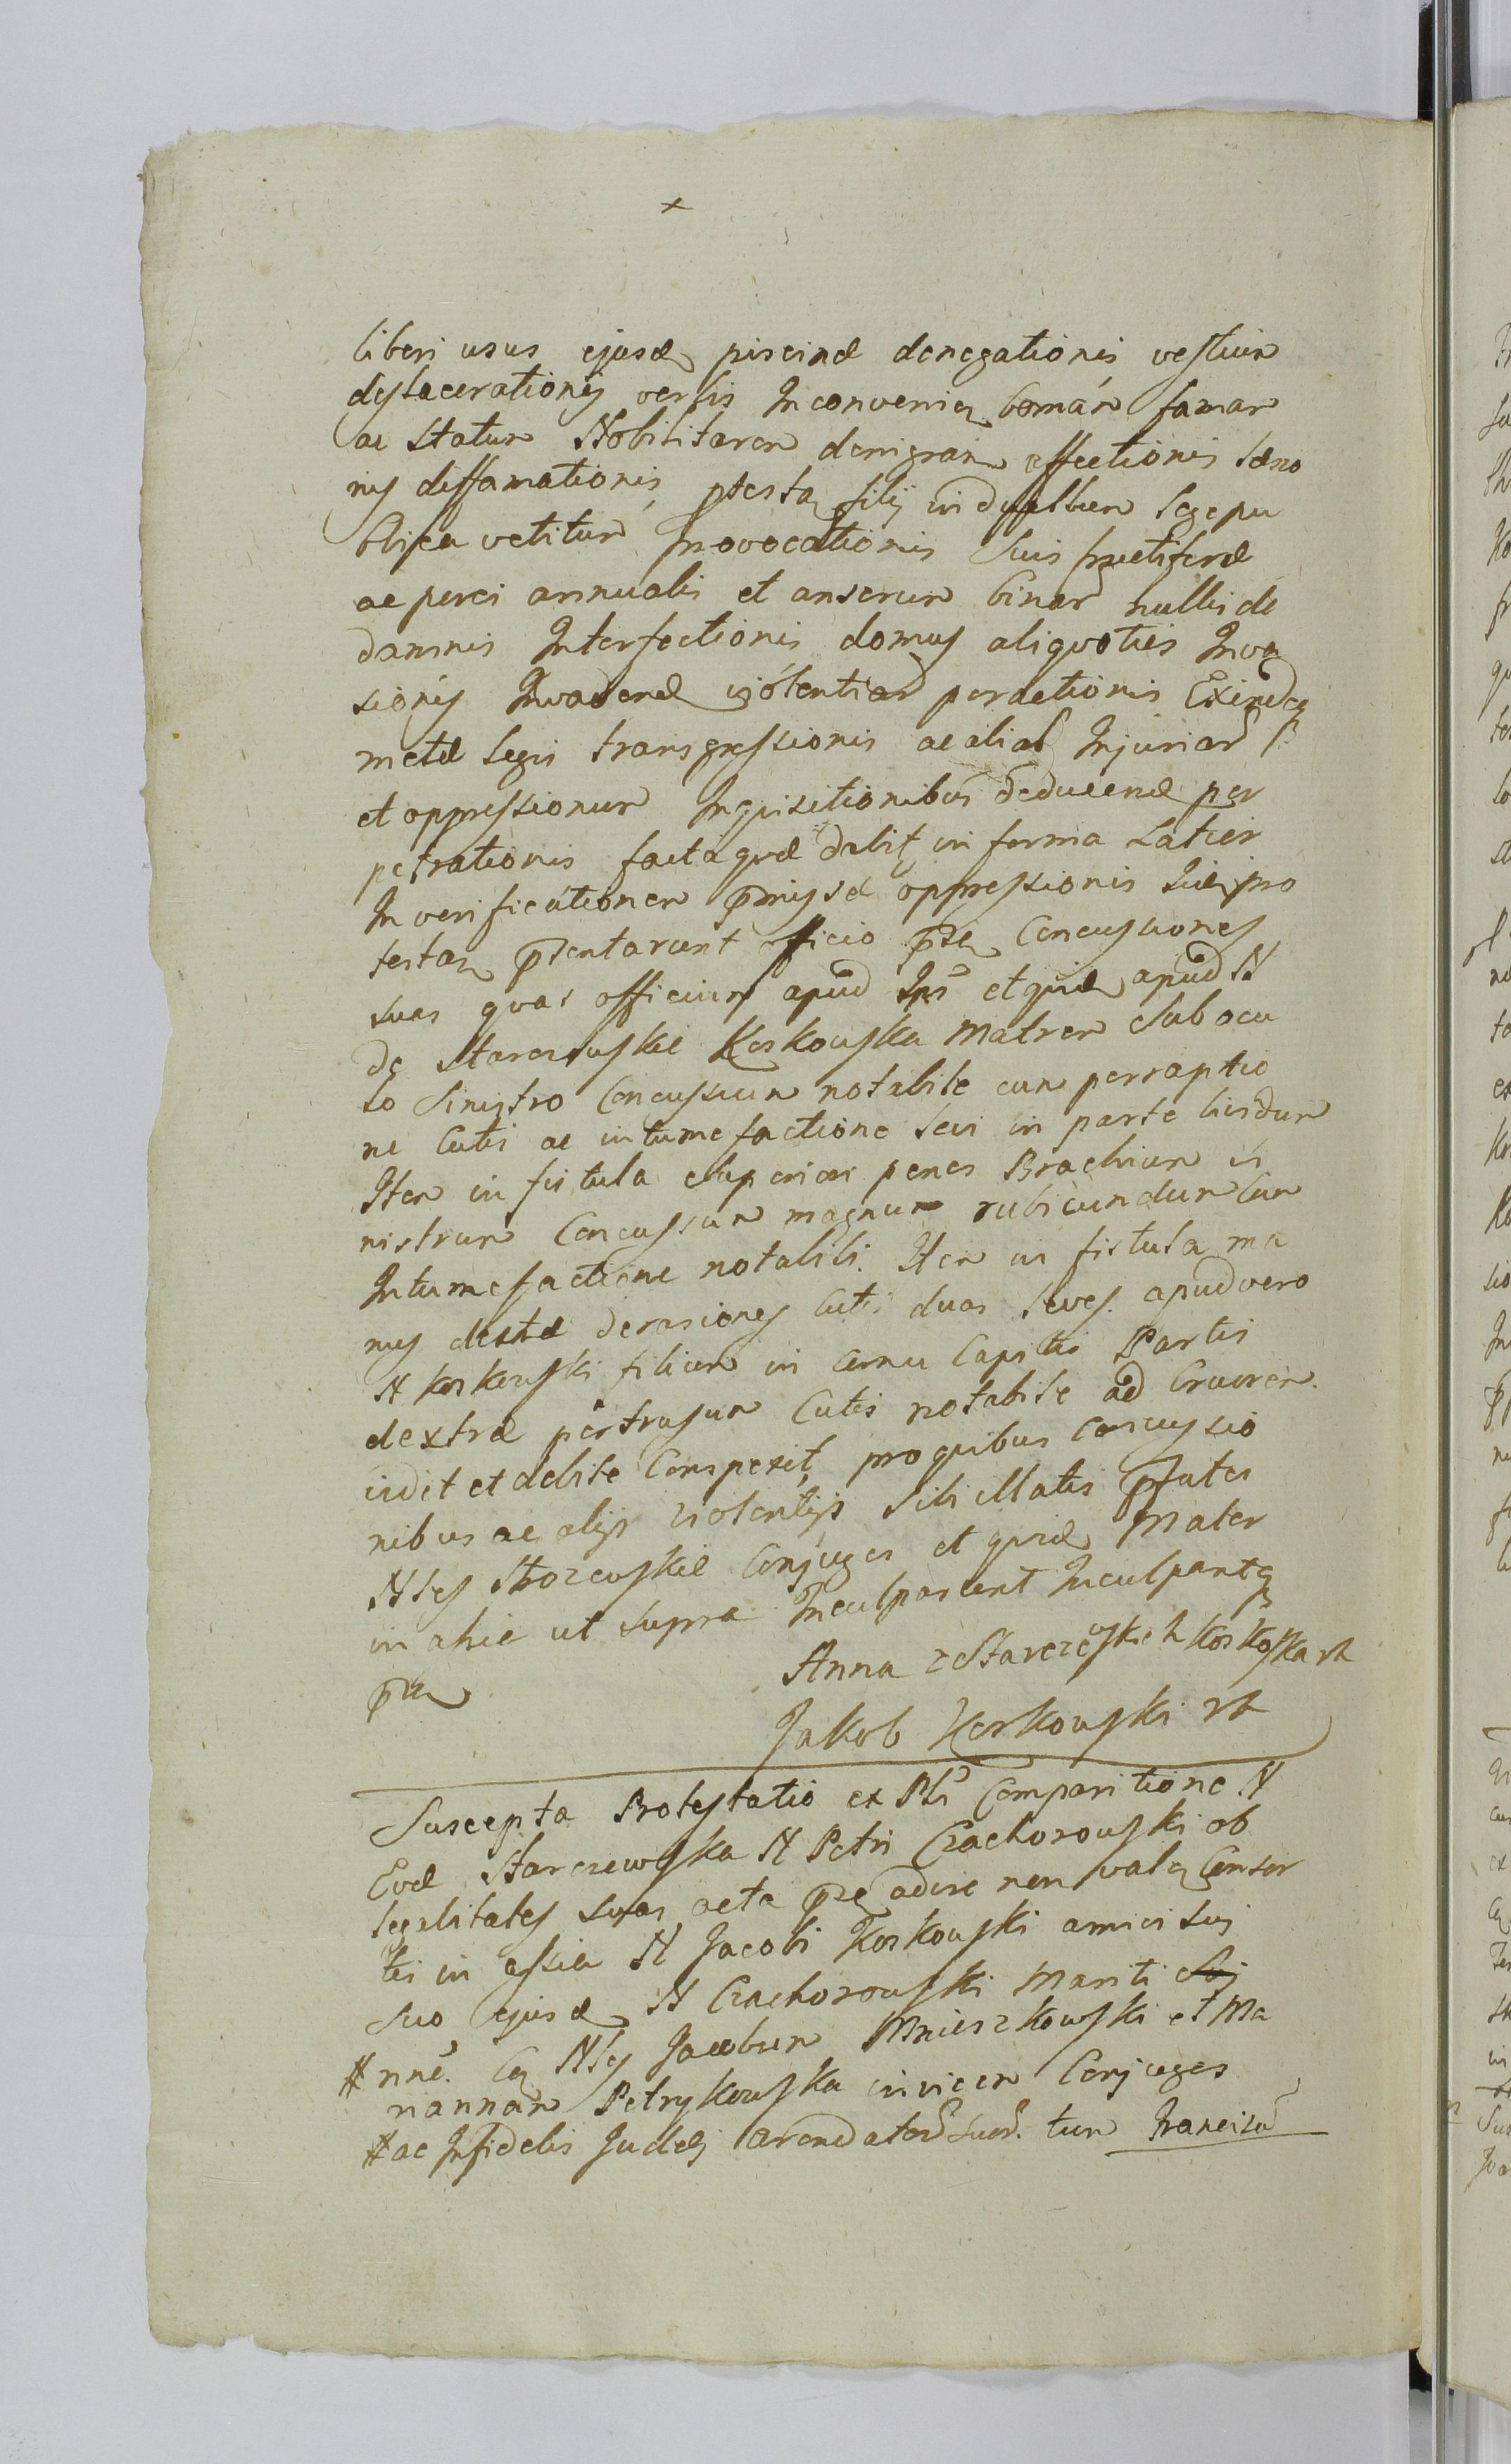 liberi usus ejusd piscinæ denegationis vestium
dyslacerationis verbis Inconvenien bonam famam
ac statum Nobilitarem denigran affectionis
nis diffamationis ptestan filij in duellum lege pu
blica vetitum provocationis suis fructiferæ
ac porci annualis et anserum binar nullis de
damnis Interfectionis domus aliquoties Inva
sionis Invadend violentiar peractionis Exindeq
metæ legis transgressionis ac aliar Injuriar
et oppressionum Inquisitionibus deducend per
petrationis factaque dabit in forma Latior
In verificationem pmissæ oppressionis suæ pro
testan psentarunt officio psen Concussiones
suas quas officium apud Ips et quid apud N
de Starczewskie Koskowska Matrem sub ocu
lo sinistro Concussum notabile cum perraptio
ne Cutis ac intumefactione levi in parte lividum
Item in fistula superiori penes Brachium si
nistrum Concussum magnum rubicundum cum
Intumefactione notabili. Item in fistula ma
nus dextræ derasiones Cutis duas leves. apud vero
N Koskowski filium in cornu Capitis Partis
dextræ pertrusum Cutis notabile ad Cruorem.
vidit et debite Conspexit, pro quibus concussio
nibus ac alijs violentijs sibi illatis pfatos
Nles Strozewskie Conjuges et quid Mater
in ahie ut supra Inculparunt Inculpantq
psen
Anna z Starczewskich Koskoska rk
Jakob Koskowski rk
Suscepta Protestatio ex Pli Comparitione N
Evæ Starczewska N Petri Czachorowski ob
legalitates suas acta pse adire non valen Consor
tis in assien N Jacobi Koskowski amici sui
suo ejusd N Czachorowski Mariti sui
# nne. Cq Nles Jacobum Mnieszkowski et Ma
riannam Petrykowska invicem Conjuges
# ac Infidelis Judei arendator suor. tum Francisc